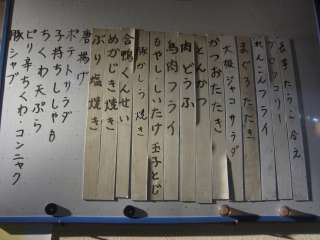 長芋たらこ合え
ブロッコリー
れんこんフライ
まぐろたたき
大根ジャコサラダ
かつおたたき
とんかつ
肉どうふ
鳥肉フライ
もやししいたけ玉子とじ
豚かしら焼き
合鴨くんせい
めかじき焼き
ぶり塩焼き
唐揚げ
ポテトサラダ
子持ちししゃも
ちくわ天ぷら
ピリ辛ちくわ・コンニャク
豚シャブ